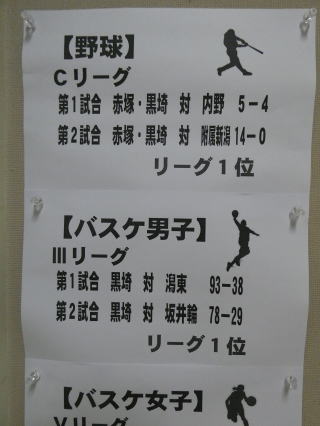 【野球】
Cリーグ
第1試合 赤塚・黒埼 対 内野 5-4
第2試合 赤塚・黒埼 対 附属新潟 14-0
リーグ1位
【バスケ男子】
Ⅲリーグ
第1試合 黒埼 対 潟東 93-38
第2試合 黒埼 対 坂井輪 78-29
リーグ1位
【バスケ女子】
Vリーグ